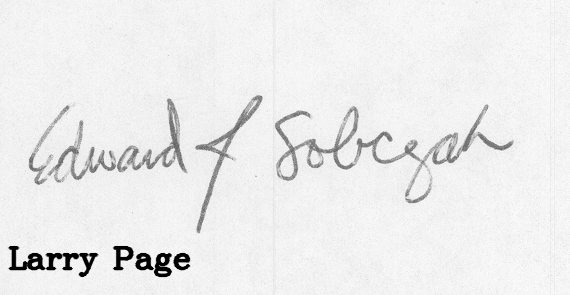 Edward J Sobczak
Larry Page